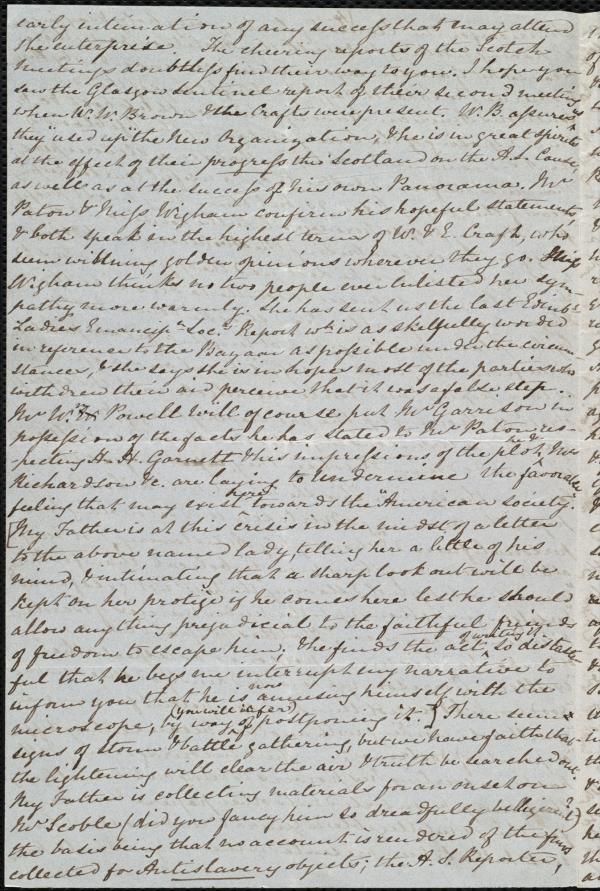 early intimation of any success that may attend
the enterprise. The cheering reports of the Scotch
meetings doubtless find their way to you. I hope you
saw the Glasgow Sentinel report of their second meeting
when W. W. Brown & the Crafts were present. W. B. assures
they "used up" the New Organization, & he is in great spirits
at the effect of their progress thro' Scotland on the A. S. Cause
as well as at the success of his own Panorama. Mr
Paton & Miss Wigham confirm his hopeful statements
& both speak in the highest terms of W. & E. Craft, who
seem winning golden opinions wherever they go. Miss
Wigham thinks no two people ever enlisted her sym-
pathy more warmly. She has sent us the last Edinb.
Ladies Emancipn. Socy. Report wh. is as skilfully worded
in reference to the Bazaar as possible under the circum
stances, & she says she is in hopes most of the parties who
withdrew their aid perceive that it was a false step.
Mr Wm. Powell will of course put Mr Garrison in
possession of the facts he has stated to Mr Paton, res-
-pecting H. H. Garnett & his impressions of the plot he & Mrs
Richardson &c. are laying to undermine the favorable
feeling that may exist here towards the "American Society".
[My Father is at this crisis in the midst of a letter
to the above named lady telling her a little of his
mind, & intimating that a sharp look out will be
kept on her protigé if he comes here lest he should
allow anything prejudicial to the faithful friends
of freedom to escape him; & he finds the act of writing it so distaste-
ful that he begs me interrupt my narrative to
inform you that he is now amusing himself with the
microscope, by way (you will infer) of postponing it.] There seem
signs of storm & battle gathering, but we have faith that
the lightening will clear the air & truth be searched out.
My Father is collecting materials for an onset on
Mr Scoble (did you fancy him so dreadfully belligerent?)
the basis being that no account is rendered of the funds
collected for Antislavery objects; the A. S. Reporter,